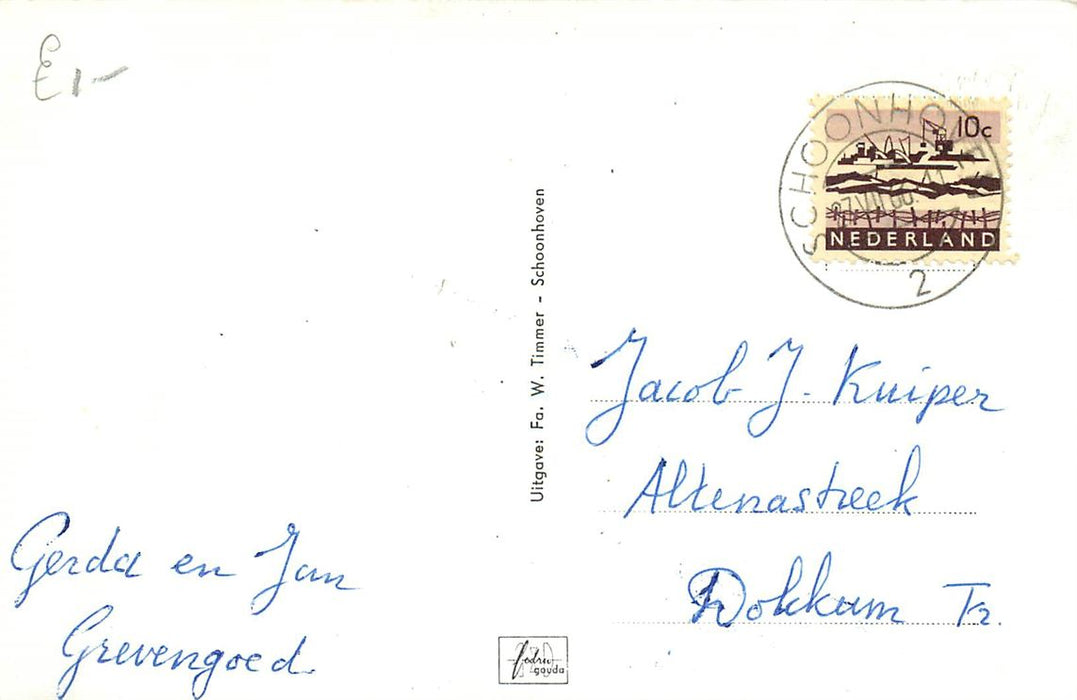 £1,-
SCHOONHOVEN
2
10c
NEDERLAND
Uitgave: Fa. W. Timmer - Schoonhoven
Jacob J. Kuiper
Altenastreek
Dokkum Fr.
Gerda en Jan
Grevengoed
gouda